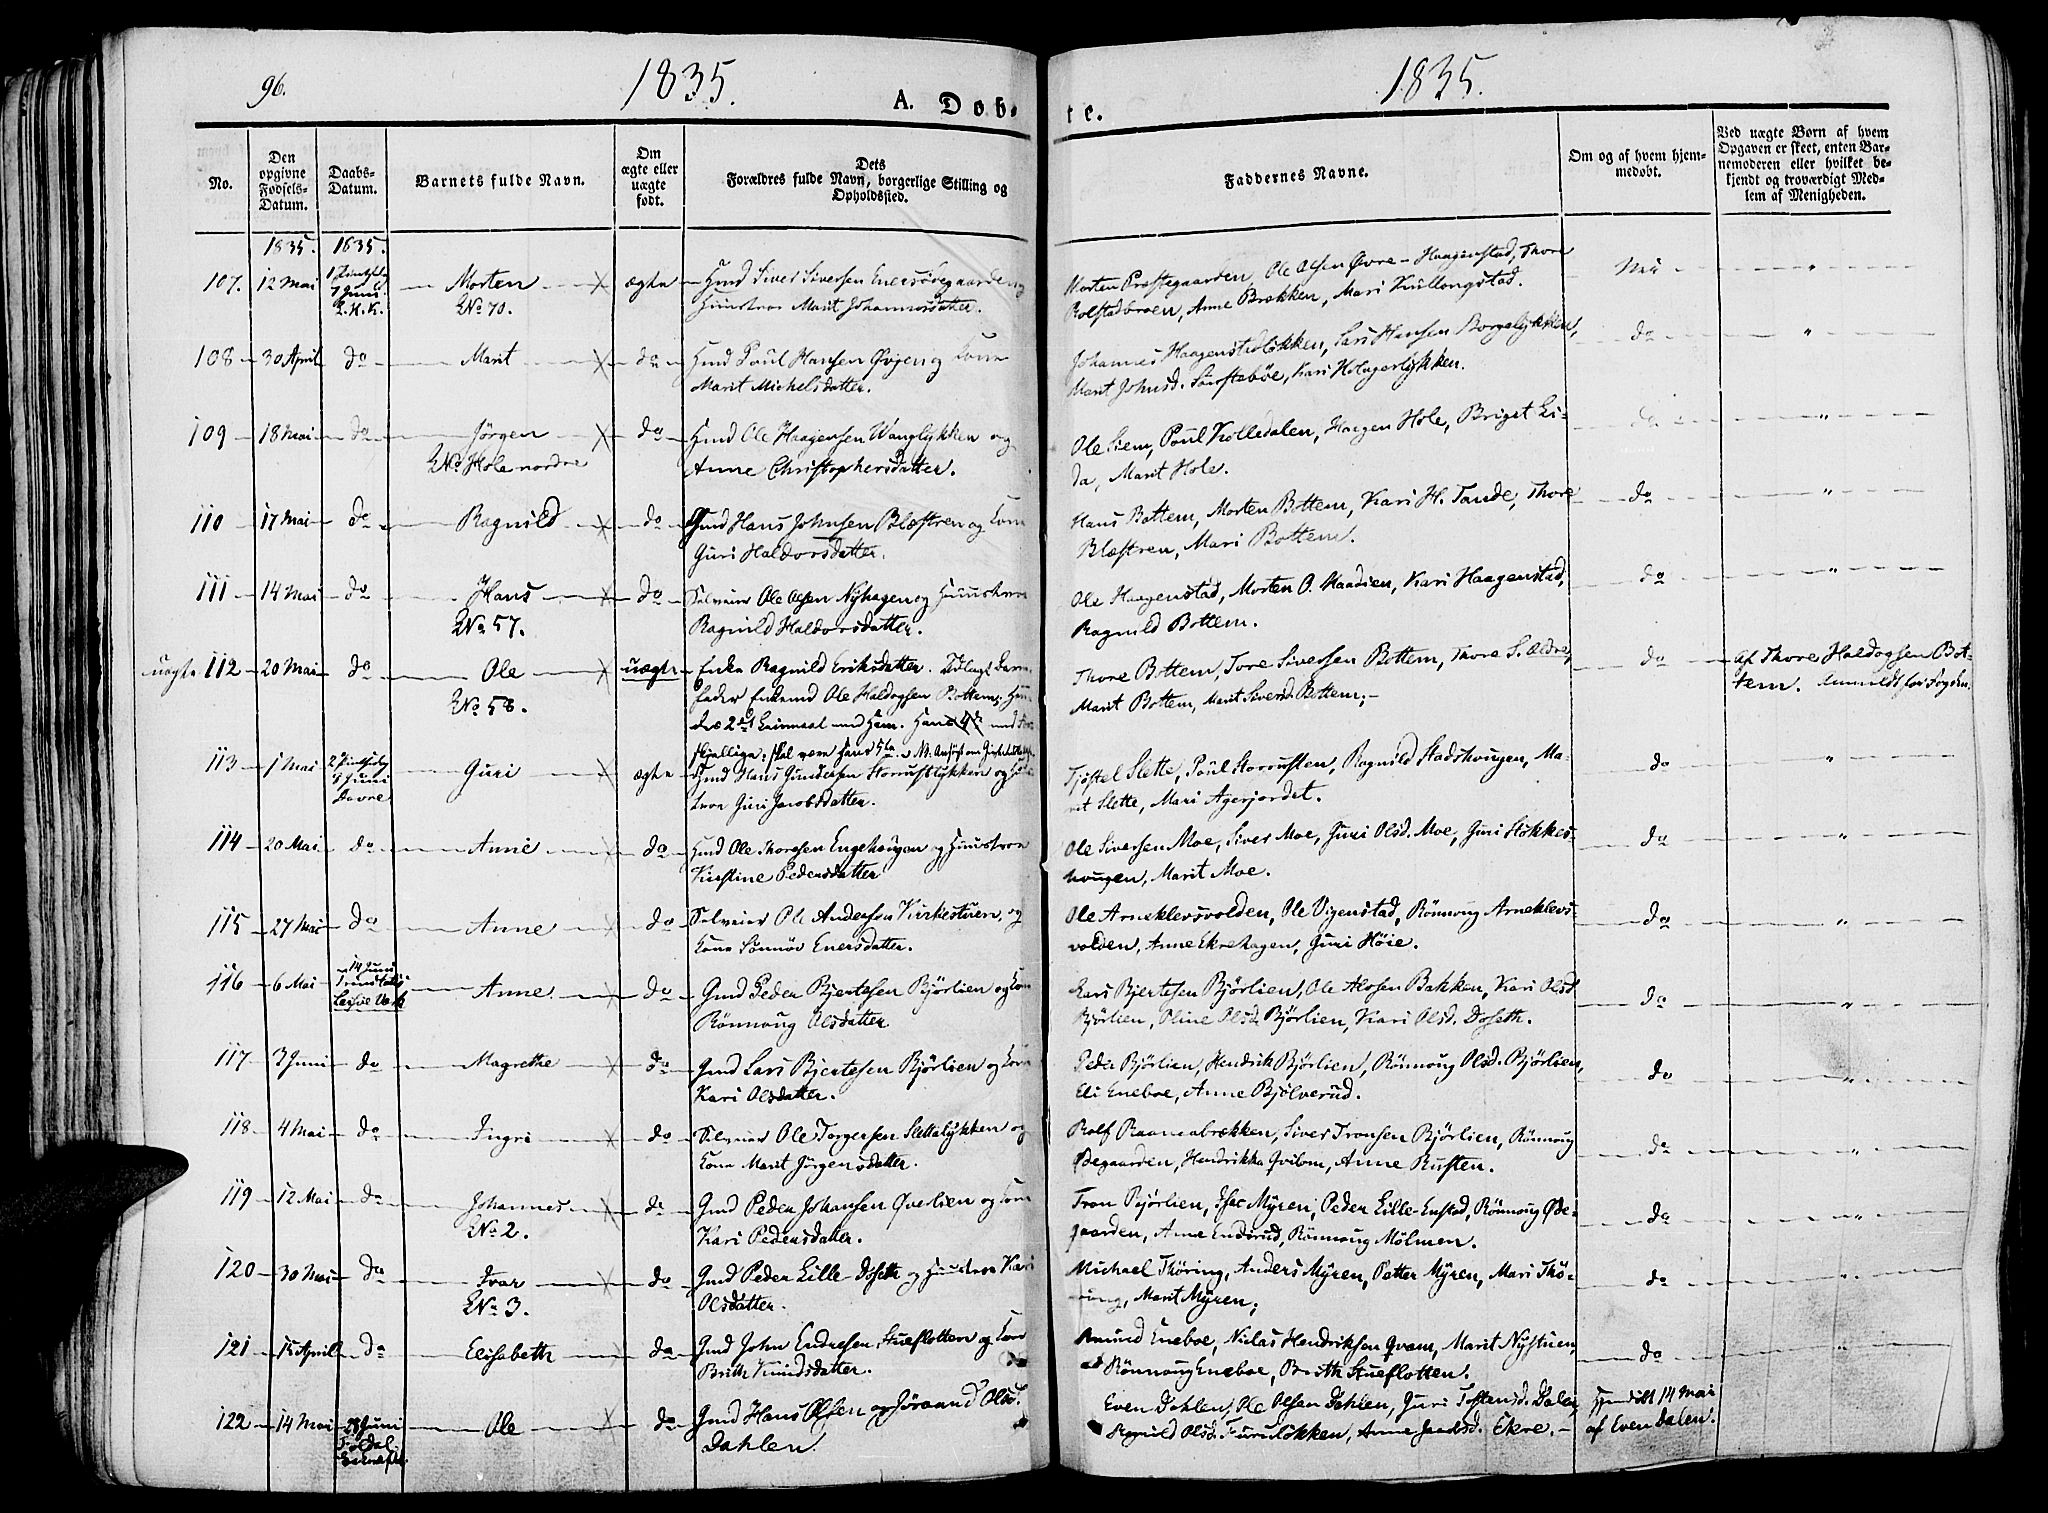 96.
1835.
A. Døb-
te.
1835.
No.
Den opgivne Fødsels-Datum.
Daabs-Datum.
Barnets fulde Navn.
Om ægte eller uægte født.
Dets Forældres fulde Navn, borgerlige Stilling og Opholdssted.
Faddernes Navne.
Om og af hvem hjemmedøbt.
Ved uægte Børn af hvem Opgaven er skeet, enten Barnemoderen eller hvilket bekjendt og troværdigt Medlem af Menigheden.
1835. 1835.
107. 12 Mai 7 Juni Morten ægte
No 70. Huustroe Marit Johannesdatter.
Morten Præstegaarden, Ole Olsen Øvre-Haagenstad, Thore
Rolstadbroen, Anne Brækken, Mari Kullongstad.
Nei "
108 30 April do Marit do Gmd Poul Hansen og Kone
Marit Michelsdatter.
Johannes Haagenstadløkken, Lars Hansen Borgeløkken,
Marit Johnsd. Kari Holagerløkken.
do "
109 18 Mai do Jörgen do Gmd Ole Haagensen Wangløkken og
No Hole nordre Anne Christophersdatter.
Ole Siem, Poul Kolledalen, Haagen Hole, Briget Li-
da, Marit Hole.
do "
110 17 Mai do Ragnild do Gmd Hans Johnsen Blæstren og Kone
Guri Haldorsdatter.
Hans Bottem, Morten Bottem, Kari H. Tande, Thore
Blæstren, Mari Bottem.
do "
111 14 Mai do Hans do Selveier Ole Olsen Nyhagen og Huustroe
No 57. Ragnild Haldorsdatter.
Ole Haagenstad, Morten O. Haadien, Kari Haagenstad,
Ragnild Bottem.
do "
uægte 112 20 Mai do Ole uægte Enke Ragnild Eriksdatter. Udlagt Barne-
No 58. fader Enkemd Ole Haldogsen Bottem;
Thore Bottem, Tore Siversen Bottem, Thore S. Ældre,
Marit Bottem, Marit Siversd. Bottem;
do Af Thore Haldogsen Bot-
tem. Anmeldt for Fogden.
113 1 Mai 8 Juni Dovre Guri ægte Gmd Hans Gundersen Storrustløkken og Huus-
troe Guri Jacobsdatter.
Tjöstel Slette, Poul Storrusten, Ragnild Stadshougen, Ma-
rit Slette, Mari Agerjordet.
do "
114 20 Mai do Anne do Gmd Ole Thoresen Engehougen og Huustroe
Kirstine Pedersdatter
Ole Siversen Moe, Siver Moe, Guri Olsd. Moe, Guri Stokkes-
hougen, Marit Moe.
do "
115 27 Mai do Anne do Selveier Ole Andersen Kirkestuen og
Kone Sönnöv Enersdatter.
Ole Arneklevsvolden, Ole Vigenstad, Rönnoug Arneklevs-
volden, Anne Ekrehagen, Guri Höie.
do "
116 6 Mai 14 Juni Lessie Værk Anne do Gmd Peder Bjertesen Björlien og Kone
Rönnoug Olsdatter
Lars Bjertesen Björlien, Ole Alosen Bakken, Kari Olsd.
Björlien, Oline Olsd. Björlien, Kari Olsd. Doseth.
do "
117 3 Juni do Magrethe do Gmd Lars Bjertesen Björlien og Kone
Kari Olsdatter.
Peder Björlien, Hendrik Björlien, Rönnoug Olsd. Björlien,
Eli Eneboe, Anne Bjölverud.
do "
118 4 Mai do Ingri do Selveier Ole Torgersen Slettaløkken og
Kone Marit Jörgensdatter.
Rolf Raanaabrækken, Siver Tronsen Björlien, Rönnoug
Ødegaarden, Hendrikka Qvilom, Anne Rusten.
do "
119 12 Mai do Johannes do Gmd Peder Johansen Qverlien og Kone
No 2. Kari Pedersdatter.
Tron Björlien, Isac Myren, Peder Lille-Enstad, Rönnoug Øde-
gaarden, Anne Enderud, Rönnoug Mölmen.
do "
120 30 Mai do Ivar do Gmd Peder Lille-Doseth og Huustroe Kari
No 3. Olsdatter.
Michael Thöring, Anders Myren, Petter Myren, Mari Thö-
ring, Marit Myren;
do "
121 15 April do Elisabeth do Gmd John Endresen Stueflotten og Kone
Brith Knudsdatter.
Amund Eneboe, Niclas Hendriksen Qvam, Marit Nystuen,
Rönnoug Eneboe, Brith Stueflotten.
do "
122 14 Mai 28 Juni Ole do Gmd Hans Olsen og Jöraand Olsd.
Dahlen
Even Dahlen, Ole Olsen Dahlen, Guri Tostensd. Dalen,
Ragnild Olsd. Furuløkken, Anne Jacobsd. Ekre.
Hjemdöbt 14 Mai
af Even Dalen.